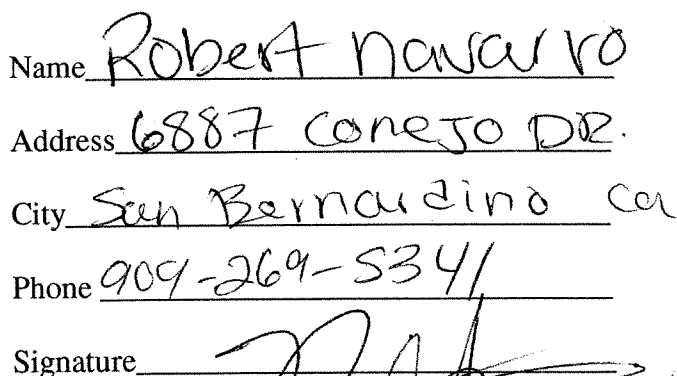 Name Robert Navarro
Address 6887 Conejo DR.
City San Bernardino Ca
Phone 909-269-5341
Signature